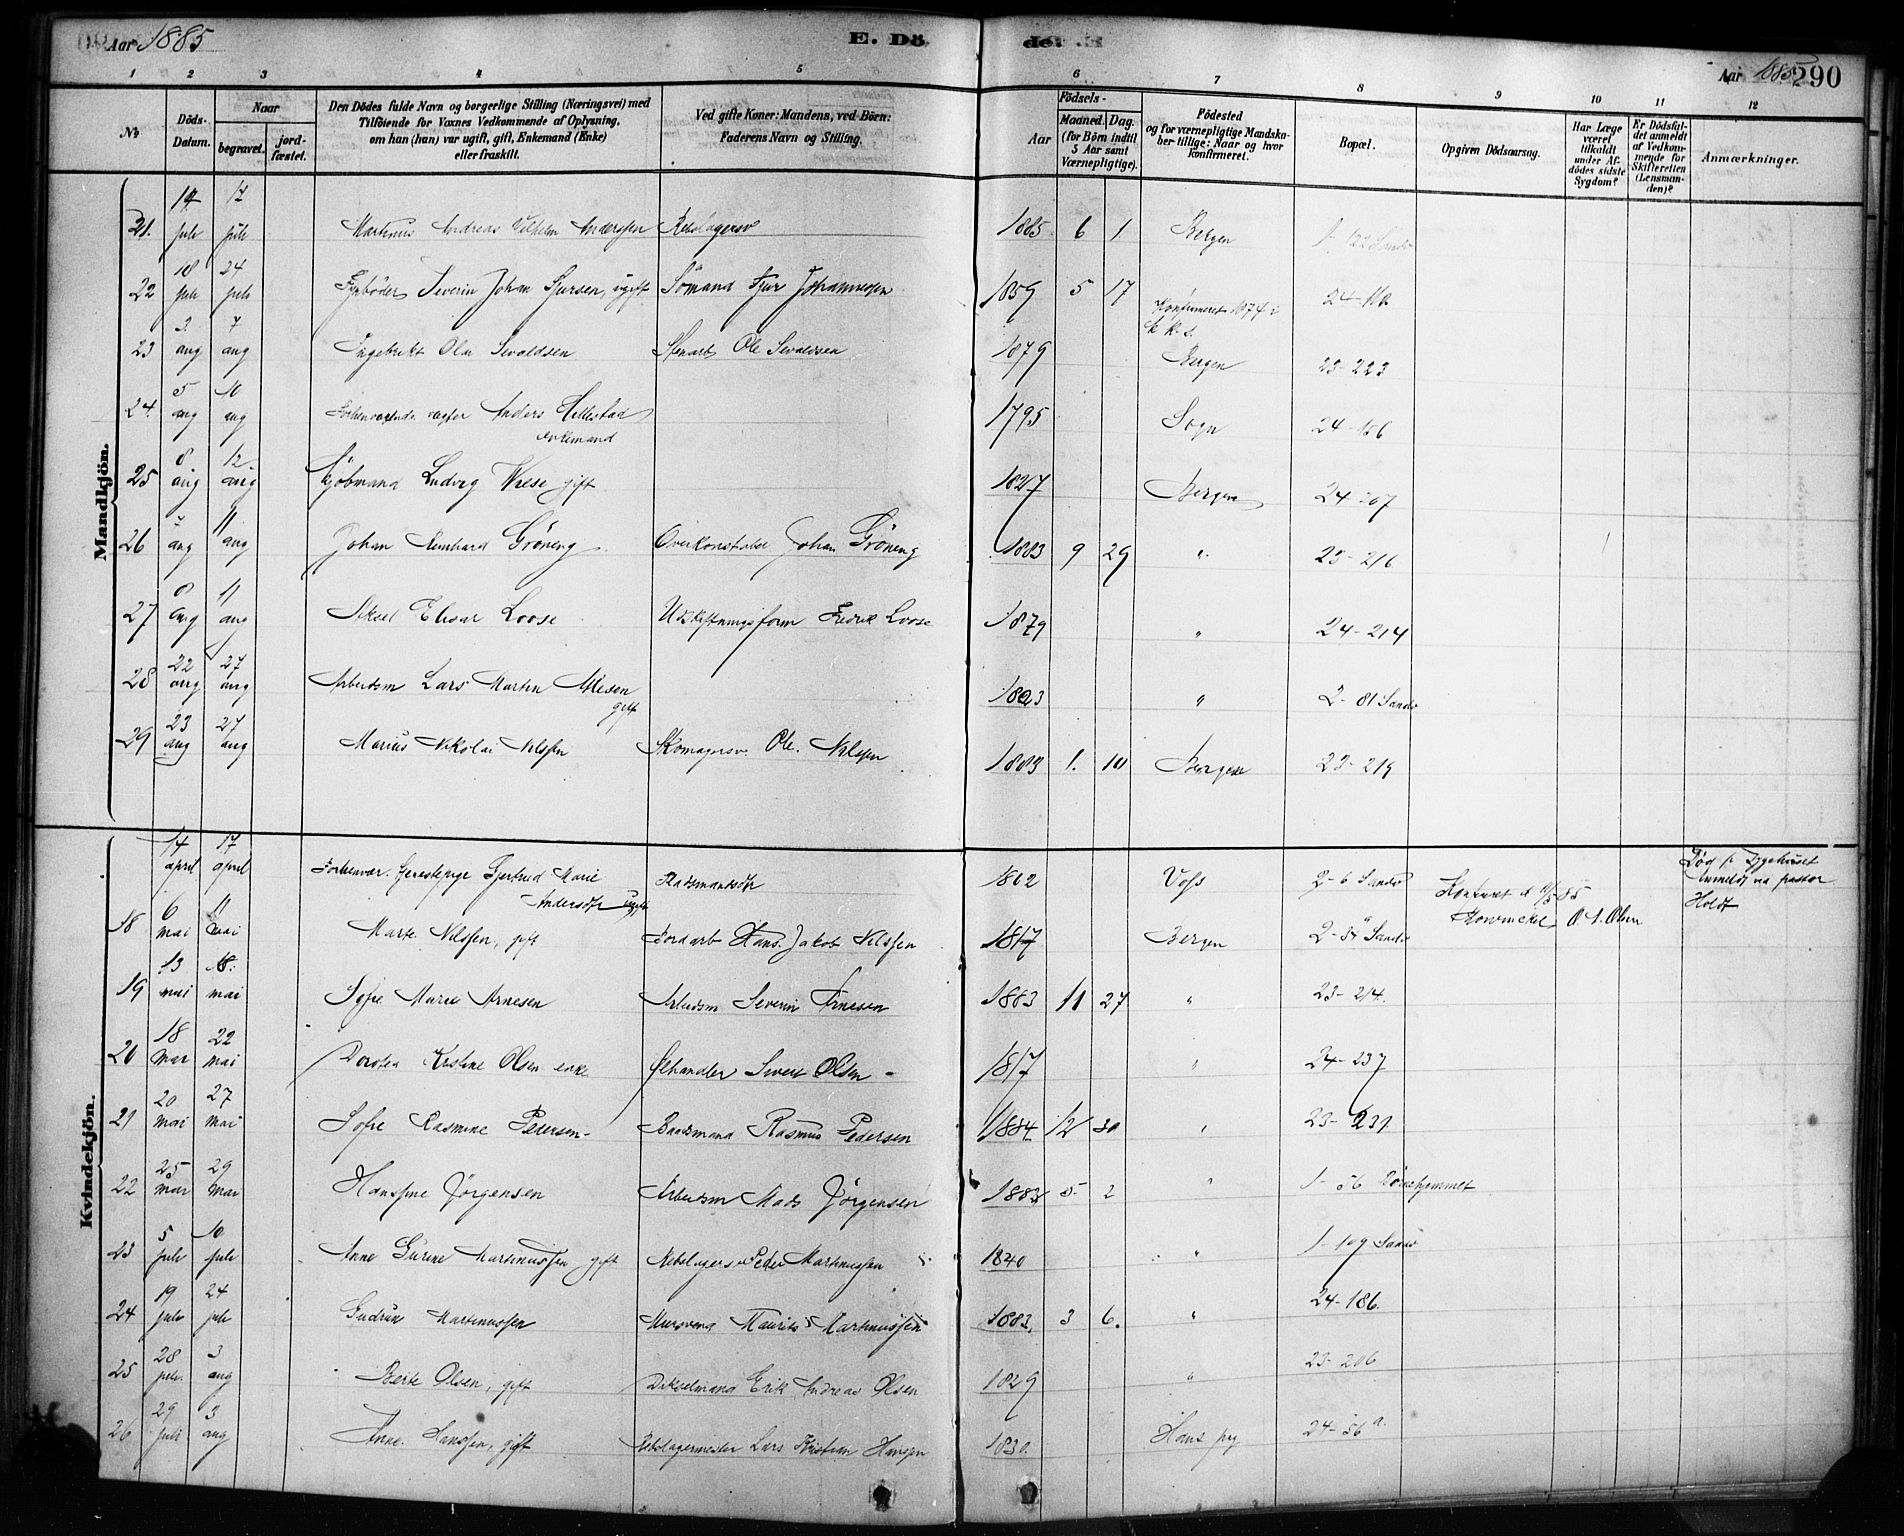 Aar 1885 E. Dö de. Aar 1885 290
1 2 3 4 5 6 7 8 9 10 11 12
No
Döds-Datum.
Naar
begravet.
jord-fæstet.
Den Dödes fulde Navn og borgerlige Stilling (Næringsvei) med
Tilföiende for Voxnes Vedkommende af Oplysning,
om han (hun) var ugift, gift, Enkemand (Enke)
eller fraskilt.
Ved gifte Koner: Mandens, ved Börn:
Faderens Navn og Stilling.
Födsels-
Aar
Maaned. Dag.
(for Börn indtil
5 Aar samt
Værnepligtige).
Födested
og for værnepligtige Mandska-
ber tillige: Naar og hvor
konfirmeret.
Bopæl.
Opgiven Dödsaarsag.
Har Læge
været
tilkaldt
under Af-
dödes sidste
Sygdom?
Er Dödsfal-
det anmeldt
af Vedkom-
mende for
Skifteretten
(Lensman-
den)?
Anmærkninger.
Mandkjön.
21. 14 juli 17 juli Martinus Andreas Vilhelm Anderssen Rebslagersv 1885 6 1 Bergen
22 18 juli 24 juli Fyrböder Severin Johan Sjursen, ugift Sömand Sjur Johannessen 1859 5 17 Konfirmeret 1874 i
23 aug 7 aug Ingebrikt Olai Sevaldsen Stenarb Ole Sevaldsen 1879 Bergen 23-223
24. 5 aug 10 aug Forhenværende vægter Anders Hillestad
enkemand 1795 Sogn 24-156
25 8 aug 12 aug Kjöbmand Ludvig Wiese gift 1827 Bergen 24-207
26 aug 11 aug Johan Reinhard Gröneng Overkonstabel Johan Gröneng 1883 9 29 " 23-216
27 8 aug 11 aug Aksel Elisar Loose Udskiftningsform Fredrik Loose 1879 " 24-214
28 22 aug 27 aug Arbeidsm Lars Martin
gift 1823 " 2-81 Sandv
29 23 aug 27 aug Marius Nikolai Nilssen Skomagersv. Ole Nilssen 1883 1. 10 Bergen 23-219
Kvindekjön.
14 april 17 april Forhenvær. Gjertrud Marie
Andersdtr ugift 1802 Voss 2-6 Sandv
Död
Anmeldt via pastor
Holdt
18 6 mai 11 mai Marte Nilssen, gift Jordarb Hans Jakob Nilssen 1817 Bergen 2-54 Sandv O. A. Olsen
19 13 mai 18. mai Sofie Marie Arnesen Arbeidsm Severin Arnesen 1883 11 27 " 23-214.
20 18 mai 22 mai Dorotea Kristine Olsen enke Ølhandler Sivert Olsen - 1817 " 24-237
21 20 mai 27 mai Sofie Rasmine Pedersen - Baadsmand Rasmus Pedersen 1884 12 30 " 23-231
22 25 mai 29 mai Hansine Jörgensen Arbeidsm Mads Jörgensen 1883 5 2 " 1-56 Börnehjemmet
23 5 juli 10 juli Anne Gurine Martinussen gift Rebslagersv Peder Martinussen 1840 " 1-109 Sandv
24 19 juli 24 juli Gudrun Martinussen Mursvend Maurits Martinussen 1883. 3 6. " 24-186.
25 28 juli 3 aug Berte Olsen, gift Dikselmand Erik Andreas Olsen 1829 " 23-206
26 29 juli 3 aug Anne Hanssen, gift Rebslagermester Lars Kristian Hanssen 1830. Haus prg 24-56 a.